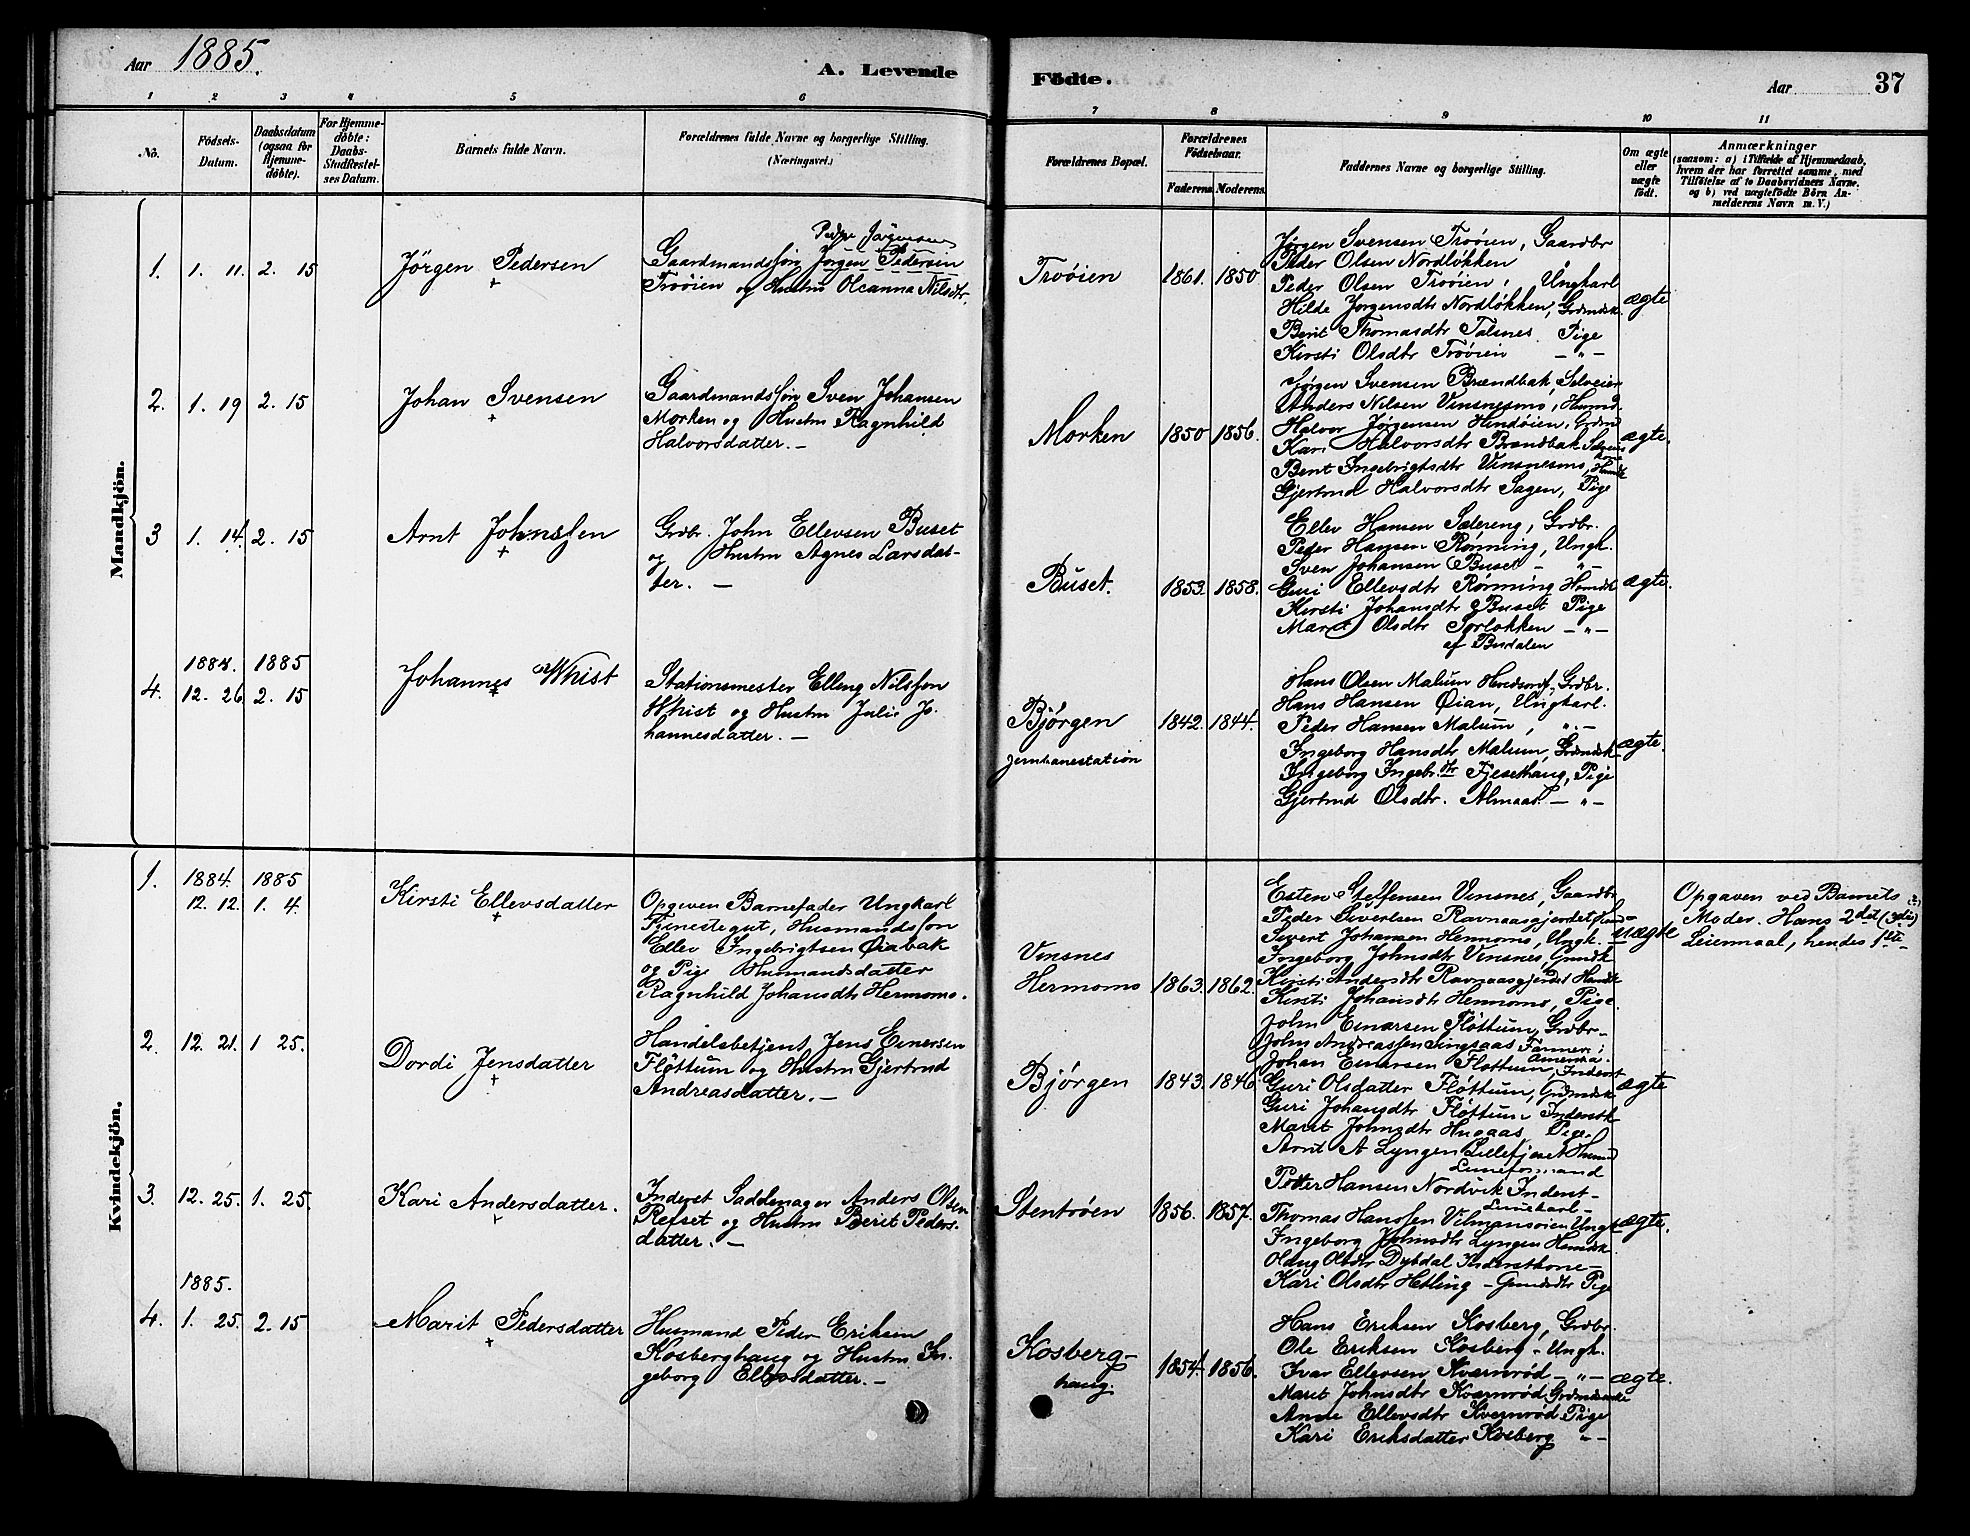 Aar 1885.
A. Levende
Födte.
Aar
37
1 2 3 4 5 6 7 8 9 10 11
No.
Födsels-
Datum.
Daabsdatum
(ogsaa for
Hjemme-
döbte).
For Hjemme-
döbte:
Daabs-
Stadfæstel-
ses Datum.
Barnets fulde Navn.
Forældrenes fulde Navne og borgerlige Stilling.
(Næringsvei.)
Forældrenes Bopæl.
Forældrenes
Födselsaar.
Faderens. Moderens.
Faddernes Navne og borgerlige Stilling.
Om ægte
eller
uægte
födt.
Anmærkninger
(saasom: a) i Tilfælde af Hjemmedaab,
hvem der har forrettet samme, med
Tilföielse af to Daabsvidners Navne.
og b) ved uægtefödte Börn An-
melderens Navn m. V.)
Mandkjön.
1. 1. 11. 2. 15
Jörgen Pedersen
Peder Jörgensen
Gaardmandssön Jörgen Pedersen
Troöien og Hustru Oleanna Nilsdtr.
Troöien
1861. 1850
Jørgen Svensen Troöien, Gaardbr
Peder Olsen Nordløkken
Peder Olsen Troöien, Ungkarl
Hilde Jørgensdtr Nordløkken, Grdmdsk.
Berit Thomasdtr Talsnes Pige
Kirsti Olsdtr Troöien — " —
ægte
2. 1. 19 2. 15
Johan Svensen
Gaardmandssön Sven Johansen
Morken og Hustru Ragnhild
Halvorsdatter. —
Morken
1850 1856.
Jørgen Svensen Brændbak, Selveier
Anders Nilsen Vinsnesmo, Husmd.
Halvor Jørgensen Hindöien, Grdmd
Kari Halvorsdtr Brændbak
Berit Ingebrigtsdtr Vinsnesmo,
Gjertrud Halvorsdtr Sagen, Pige
ægte.
3 1. 14. 2. 15
Arnt Johnssen
Grdbr. John Ellevsen Buset
og Hustru Agnes Larsdat-
ter. —
Buset.
1853. 1858.
Ellev Hansen Sætereng, Grdbr.
Peder Hansen Rønning, Ungk.
Sven Johansen Buset — " —
Guri Ellevsdtr Rønning
Kirsti Johansdtr Buset Pige
Marit Olsdtr Sørløkken — " —
af Budalen
ægte.
1884. 1885
4. 12. 26 2. 15
Johannes Whist
Stationsmester Elling Nilssen
Whist og Hustru Julie Jo-
hannesdatter. —
Bjørgen
Jernbanestation
1842. 1844.
Hans Olsen Malum Grdbr.
Hans Hansen Öian, Ungkarl.
Peder Hansen Malum, " —
Ingeborg Hansdtr Malum, Grdmdsk
Ingeborg Ingebr.dtr Fjesethaug, Pige
Gjertrud Olsdtr. Almaas — " —
ægte.
Kvindekjön.
1.
1884. 1885
12. 12. 1. 4.
Kirsti Ellevsdatter
Opgiven Barnefader Ungkarl
Tjenestegut, Husmandssön
Ellev Ingebrigtsen Öiabak
og Pige Husmandsdatter
Ragnhild Johansdtr Hermomo.
Vinsnes
Hermomo
1863. 1862.
Esten Steffensen Vinsnes, Gaardbr.
Peder Siverlsen Ravnaasgjerdet,
Sivert Johansen Hermomo, Ungk.
Ingeborg Johnsdtr Vinsnes,
Kirsti Andersdtr Ravnaasgjerdet
Kirsti Johansdtr Hermomo, Pige
uægte
Opgaven ved Barnets
Moder. Hans 2det (3die)
Leiermaal, hendes 1ste
2. 12. 21. 1 25.
Dordi Jensdatter
Handelsbetjent Jens Einersen
Fløttum og Hustru Gjertrud
Andreasdatter. —
Bjørgen
1843. 1846
John Einarsen Fløttum, Grdbr.
John Andreassen Singsaas Farmer i
Amerika.
Johan Einarsen Fløttum, Inderst
Guri Olsdatter Fløttum, Grdmdsk
Guri Johansdtr Fløttum Inderstk
Marit Johnsdtr Hugaas Pige.
ægte
3. 12. 25. 1. 25.
Kari Andersdatter.
Inderst Sadelmager Anders Olsen
Refset og Hustru Berit Peders-
datter. —
Stentröen
1856. 1857.
Arnt A Lyngen Lillefjeset
Petter Hansen Nordvik Inderst
Thomas Hanssen Vilmansöien Ungk
Ingeborg Johnsdtr Lyngen
Olaug Olsdtr Dybdal Inderstkone
Kari Olsdtr Hetling — Pige
ægte.
1885.
4. 1. 25. 2. 15
Marit Pedersdatter
Husmand Peder Eriksen
Kosberghaug og Hustru In-
geborg Ellevsdatter. —
Kosberg-
haug.
1854. 1856.
Hans Eriksen Kosberg, Grdbr.
Ole Eriksen Kosberg — Ungk.
Ivar Ellevsen Kvernrød — " —
Marit Johnsdtr Kvernrød
Anne Ellevsdtr Kvernrød Pige
Kari Eriksdatter Kosberg " —
ægte.